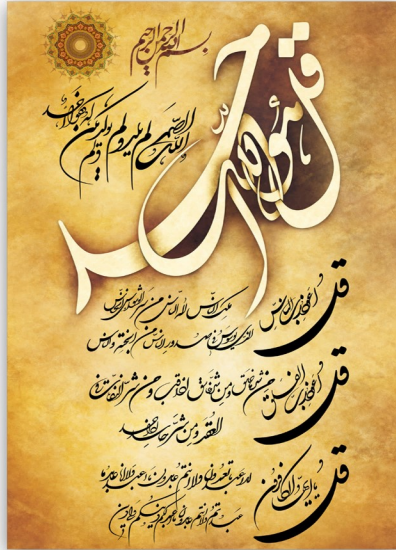 بسم الله الرحمن الرحیم
قل هو الله احد
الله الصمد لم یلد و لم یولد و لم یکن له کفوا احد
قل اعوذ برب الناس ملک الناس اله الناس من شر الوسواس الخناس
الذی یوسوس فی صدور الناس من الجنة و الناس
قل اعوذ برب الفلق من شر ما خلق و من شر غاسق اذا وقب و من شر النفاثات فی
العقد و من شر حاسد اذا حسد
قل یا ایها الکافرون لا اعبد ما تعبدون و لا انتم عابدون ما اعبد و لا انا عابد ما
عبدتم و لا انتم عابدون ما اعبد لکم دینکم ولی دین